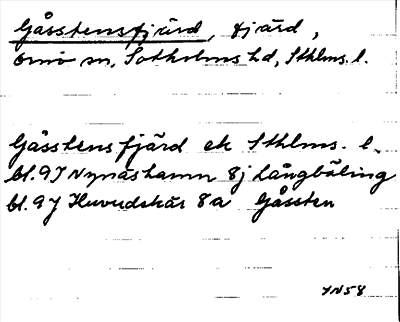 Gåsstensfjärd, fjärd,
Ornö sn, Sotholms hd, Sthlms. l.
Gåsstensfjärd ek Sthlms. l.
bl. 9I Nynäshamn 8j Långbäling
bl. 9J Huvudskär 8a Gåssten
JN58